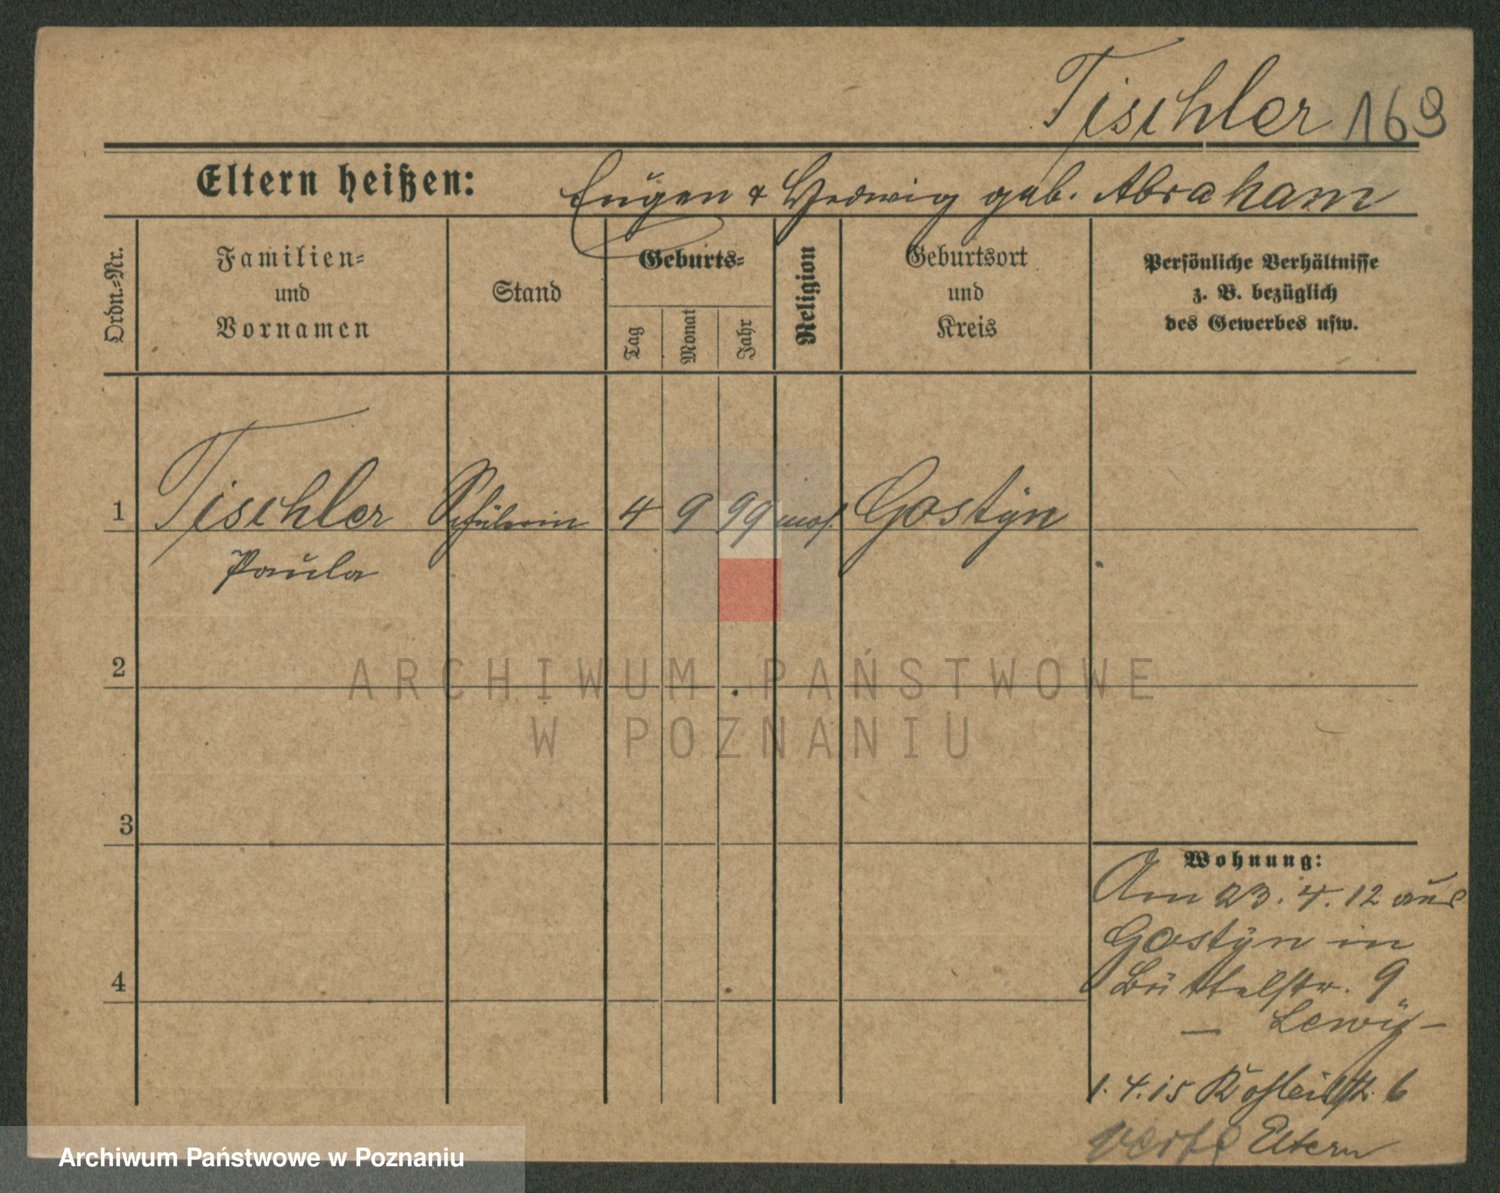 Tischler 169
Eltern heißen: Eugen & Hedwig geb. Abraham
Ordn.-Nr.
Familien-
und
Vornamen
Stand
Geburts-
Tag
Monat
Jahr
Religion
Geburtsort
und
Kreis
Persönliche Verhältnisse
z. B. bezüglich
des Gewerbes usw.
1 Tischler Schülerin 4 9 99 mos. Gostÿn
Paula
2
ARCHIWUM PAŃSTWOWE
W POZNANIU
3
4
Wohnung:
Am 23.4.12 aus
Gostÿn in
Büttelstr. 9
– Lewÿ –
1.4.15 6
Eltern
Archiwum Państwowe w Poznaniu